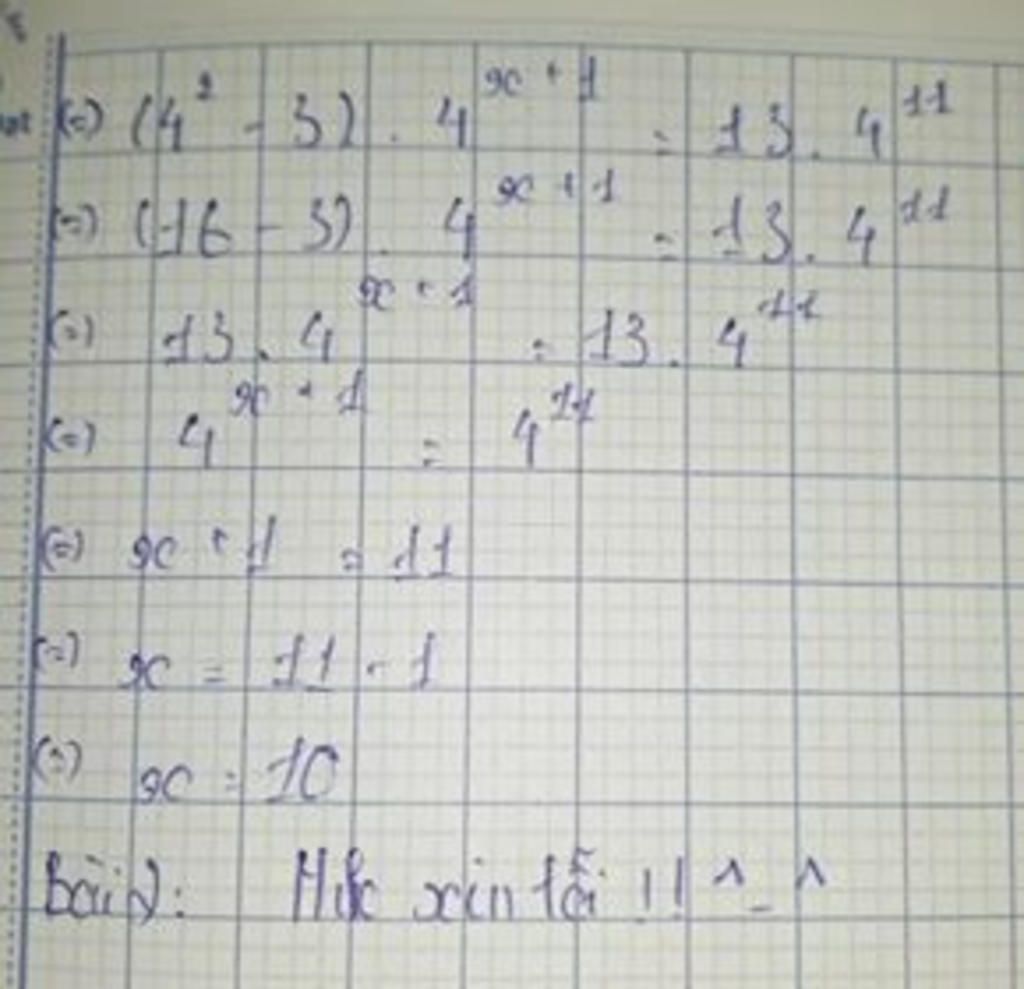 (=) (4² - 3) . 4^(x + 1) = 13 . 4^11
(=) (16 - 3) . 4^(x + 1) = 13 . 4^11
(=) 13 . 4^(x + 1) = 13 . 4^11
(=) 4^(x + 1) = 4^11
(=) x + 1 = 11
(=) x = 11 - 1
(=) x = 10
Bài 2: Hức xin lỗi !! ^_^